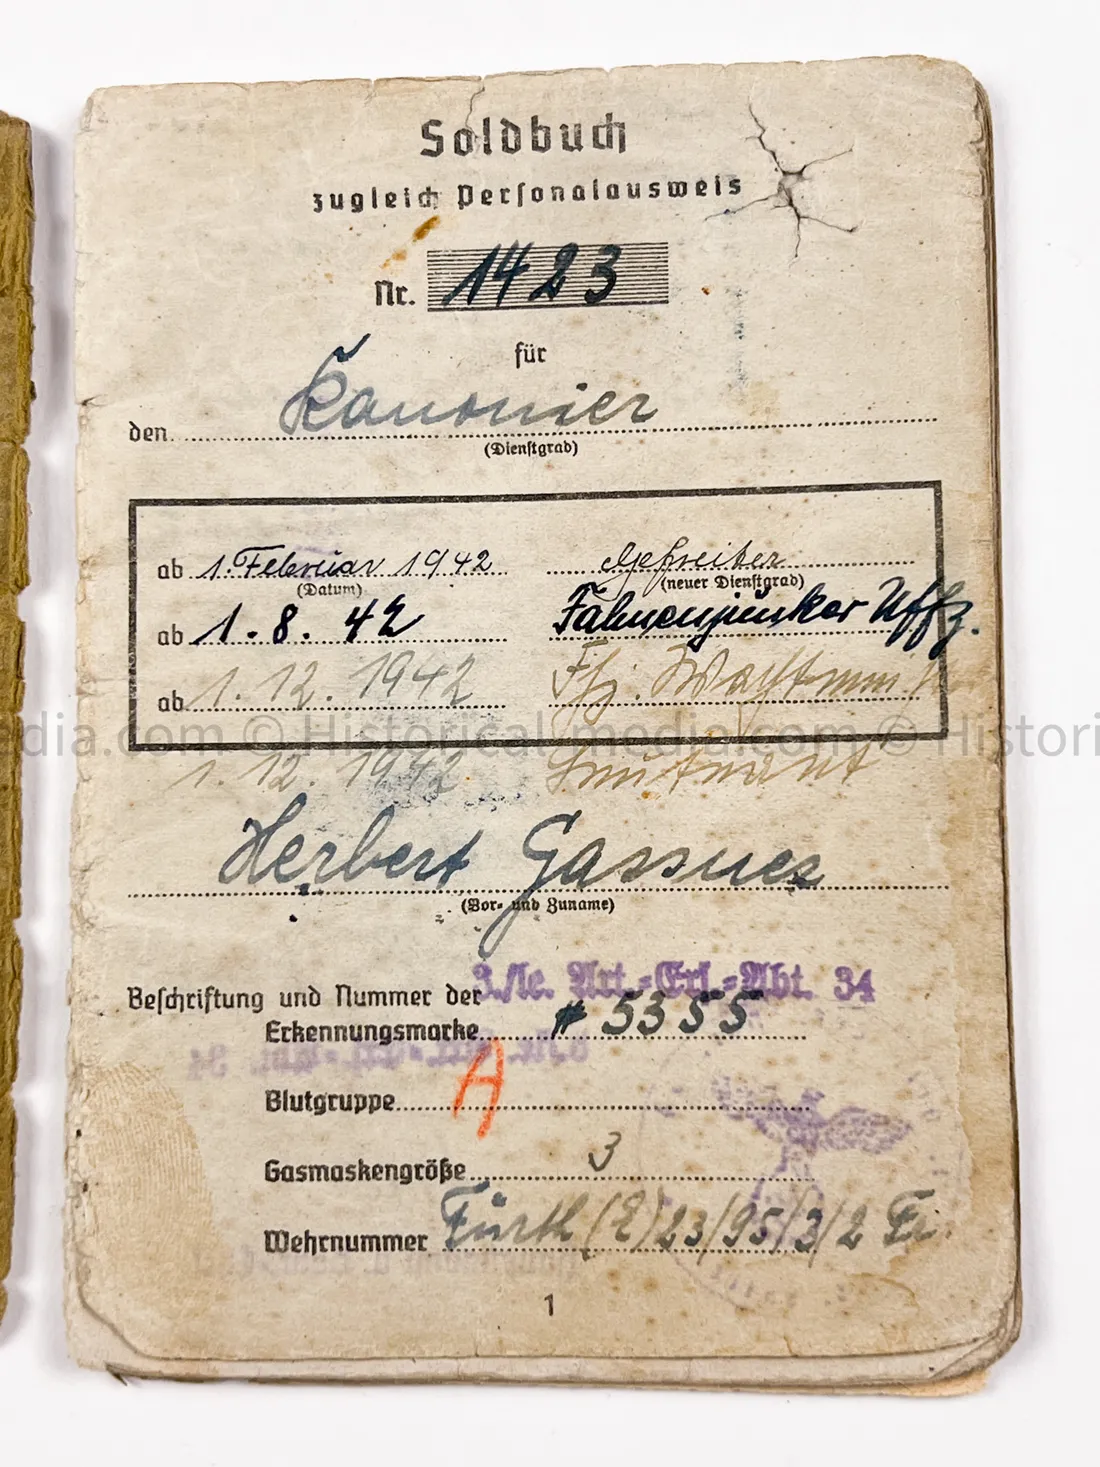 Soldbuch
zugleich Personalausweis
Nr. 1423
für
den Kanonier
(Dienstgrad)
ab 1. Februar 1942 Gefreiter
(Datum) (neuer Dienstgrad)
ab 1. 8. 42 Fahnenjunker Uffz.
ab 1. 12. 1942 Fhj. Wachtmeister
1. 12. 1942 Leutnant
Herbert Gassner
(Vor- und Zuname)
3./le. Art.=Ers.=Abt. 34
Beschriftung und Nummer der
Erkennungsmarke # 5355
Blutgruppe A
Gasmaskengröße 3
Wehrnummer Fürth (E) 23/95/3/2
1
edia.com © Historical-media.com © Histori